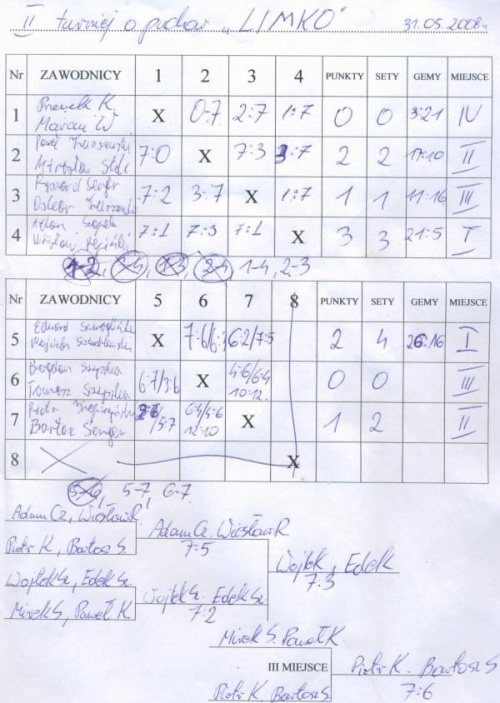 II turniej o puchar „LIMKO" 31.05.2008r.
Nr ZAWODNICY 1 2 3 4 PUNKTY SETY GEMY MIEJSCE
1 K. X 0-7 2:7 1:7 0 0 3:21 IV
Marcin W
2 Paweł 7:0 X 7:3 3:7 2 2 17:10 II
Mirosław
3 Ryszard 7:2 3-7 X 1:7 1 1 11-16 III
Oskar
4 Adam 7:1 7:3 7:1 X 3 3 21:5 I
Wiesław
1-2, 3-4, 1-3, 2-4, 1-4, 2-3
Nr ZAWODNICY 5 6 7 8 PUNKTY SETY GEMY MIEJSCE
5 Edward X 7:6/6:3 6:2/7:5 2 4 26:16 I
Wojciech
6 Bogdan 6:7/3:6 X 4:6/6:4 0 0 III
Tomasz 10:12.
7 Piotr 2:6 6:4/4:6 X 1 2 II
Bartosz /5:7 12:10
8 X
5-6, 5-7, 6-7.
Adam Cz, Wiesław R.
Adam Cz. Wiesław R
Piotr K, Bartosz S.
7:5
Wojtek, Edek
7:3
Wojtek Sz, Edek Sz.
Wojtek Sz. Edek Sz.
Mirek S, Paweł K
7:2
Mirek S. Paweł K
III MIEJSCE
Piotr K. Bartosz S
Piotr K Bartosz S
7:6